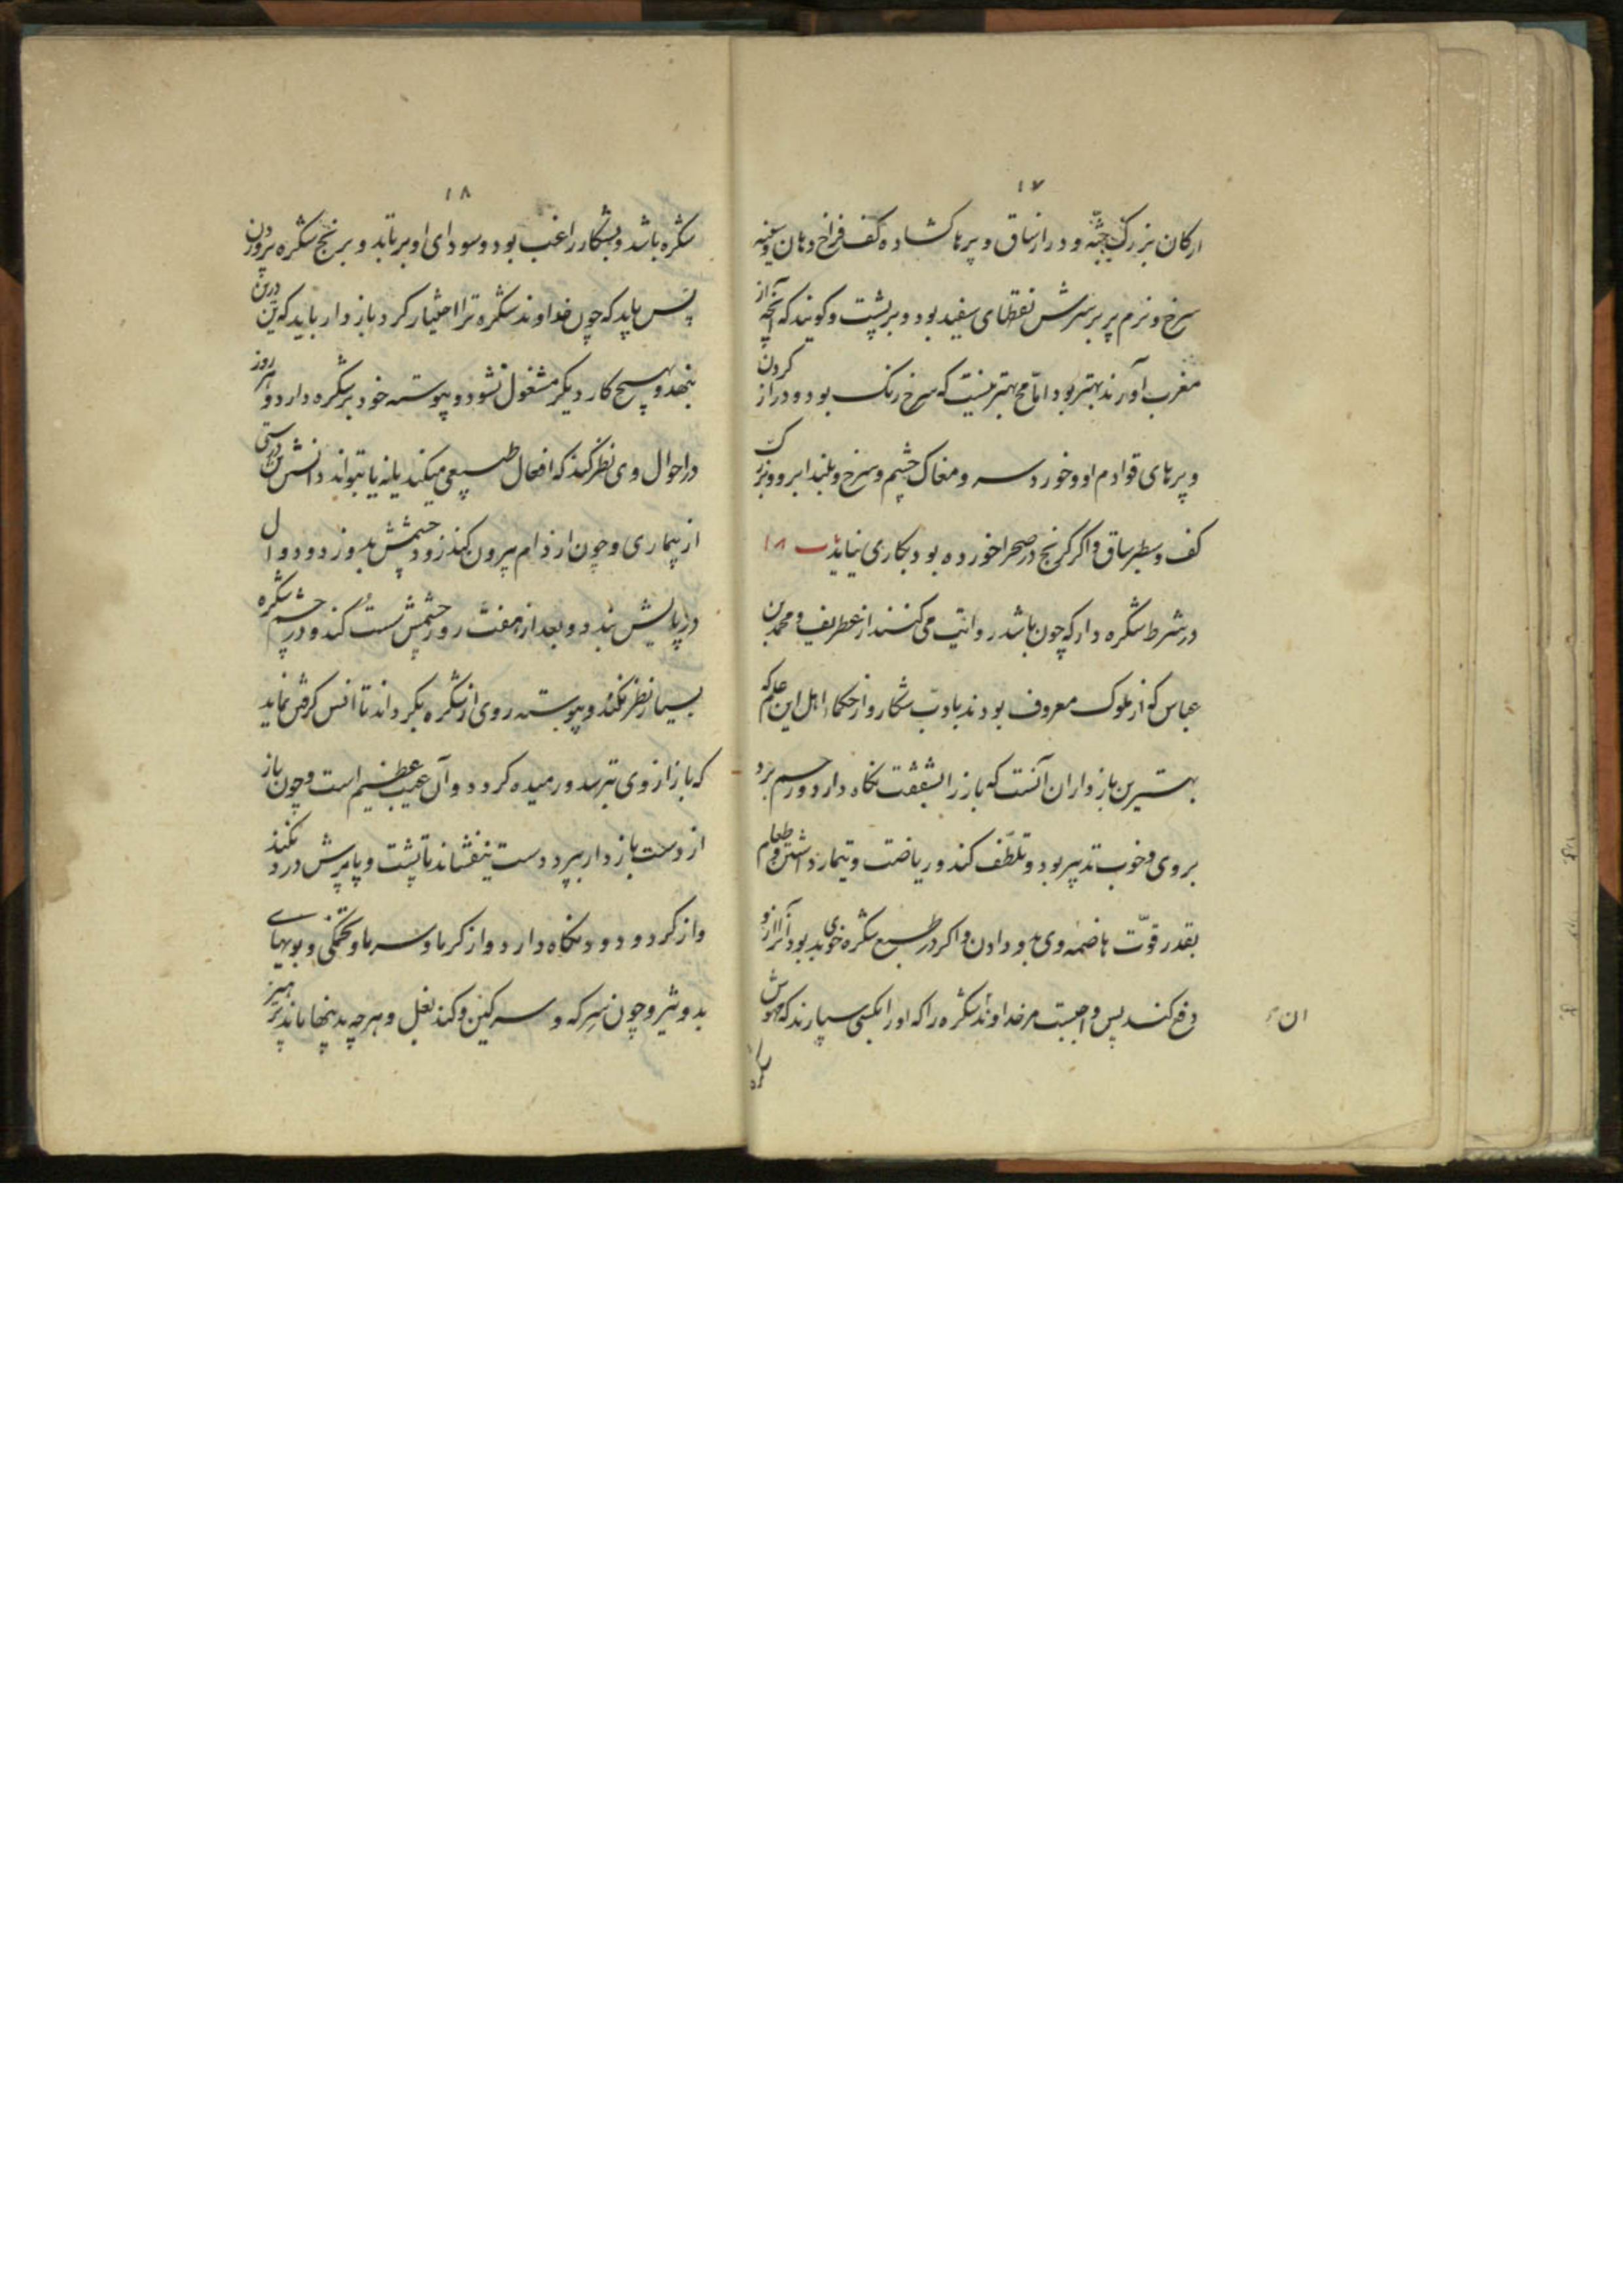 ۱۷
ارکان بزرک جثّه و دراز ساق و پرها کشاده کف فراخ دهان و سینه
سرخ و نرم پر بر سرش نقطهای سفید بود و بر پشت و کویند که آنچه از
مغرب آورند بهتر بود امّا هیچ بهتر نیست که سرخ رنک بود و دراز کردن
و پرهای قوادم او و خورد سر و مغاک چشم و سرخ و بلند ابرو و بزرک
کف و سطبر ساق و اکر کرنج در صحرا خورده بود بکاری نیاید باب ۱۸
در شرط شکره دار که چون باشد روایت می کنند از غطریف و محمد بن
عباس که از ملوک معروف بودند بادب شکار و از حکماء اهل این علم که
بهترین بازداران آنست که باز را بشفقت نکاه دارد و رحم برد
بروی و خوب تدبیر بود و تلطّف کند و ریاضت و تیمار داشتن و طعام
بقدر قوّت هاضمه وی بود دادن و اکر در طبع شکره خوی بد بود آنرا از و
دفع کند پس واجبست مر خداوند شکره را که او را بکسی سپارند که مهوش
ان
۱۸
شکره باشد و بشکار راغب بود و سودای او برتابد و برنج شکره پروردن
پس باید که چون خداوند شکره ترا اختیار کرد بازدار باید که تن درین
بنهد و بهیچ کار دیکر مشغول نشود و پیوسته خود بر شکره دارد و هر روز
در احوال وی نظر کند که افعال طبیعی میکند یا نه یا بتواند دانستن درستی
از بیماری و چون از دام بیرون کند زود چشمش بدوزد و دوال
در پایش بندد و بعد از هفت روز چشمش سست کند و در چشم شکره
بسیار نظر نکند و پیوسته روی از شکره بکرداند تا انس کرفتن نماید
که باز از وی بترسد و رمیده کردد و آن عیب عظیم است و چون باز
از دست بازدار بپرد دست بنفشاند تا پشت و پا و پرش درد نکند
و از کرد و دود نکاه دارد و از کرما و سرما و تختکی و بویهای
بد و شیر و چون سرکه و سرکین و کند بغل و هرچه بدینها ماند پرهیز